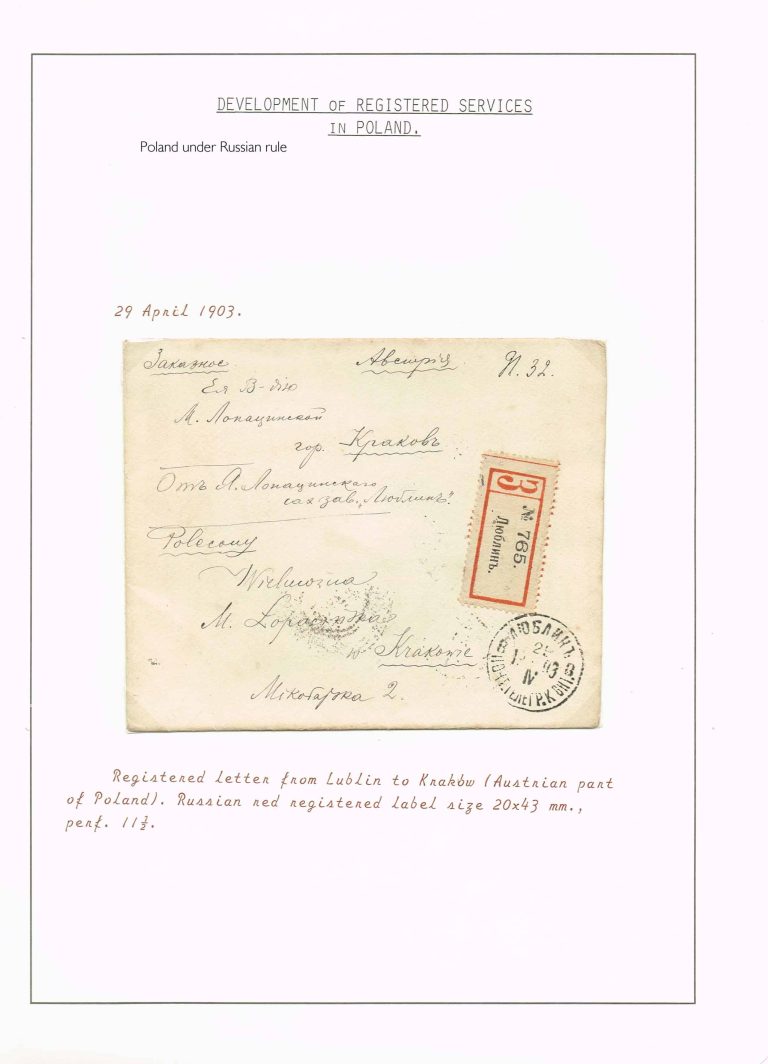 DEVELOPMENT OF REGISTERED SERVICES
IN POLAND.
Poland under Russian rule
29 April 1903.
Заказное Австрія N. 32.
Ея В-дію
М. Лопацинской
гор. Краковъ
Отъ Я. Лопацинскаго
сах. зав. „Люблинъ“.
Polecony
Wielmożna
M. Łopacińska
w Krakowie
Mikołajska 2.
З
№ 765.
Люблинъ.
ЛЮБЛИНЪ
29
IV
Registered letter from Lublin to Kraków (Austrian part
of Poland). Russian red registered label size 20x43 mm.,
perf. 11½.